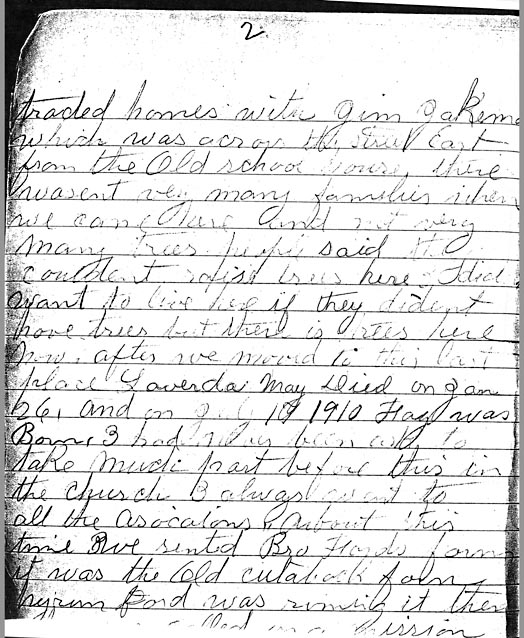 2.
traded homes with Jim Jakema
which was across the street East
from the Old school house, there
wasent very many families when
we came here and not very
many trees people said
couldent raise trees here I did
want to live here if they dident
have trees but there is trees here
now. after we moved to this last
place Laverda May Died on Jan
26, and on July 19 1910 Fay was
Born, I had never been to
take much part before this in
the church I always went to
all the asociatons, About this
time we rented Bro Fords farm
it was the Old cutaback farm
hyrum Pond was runing it then
on a mission